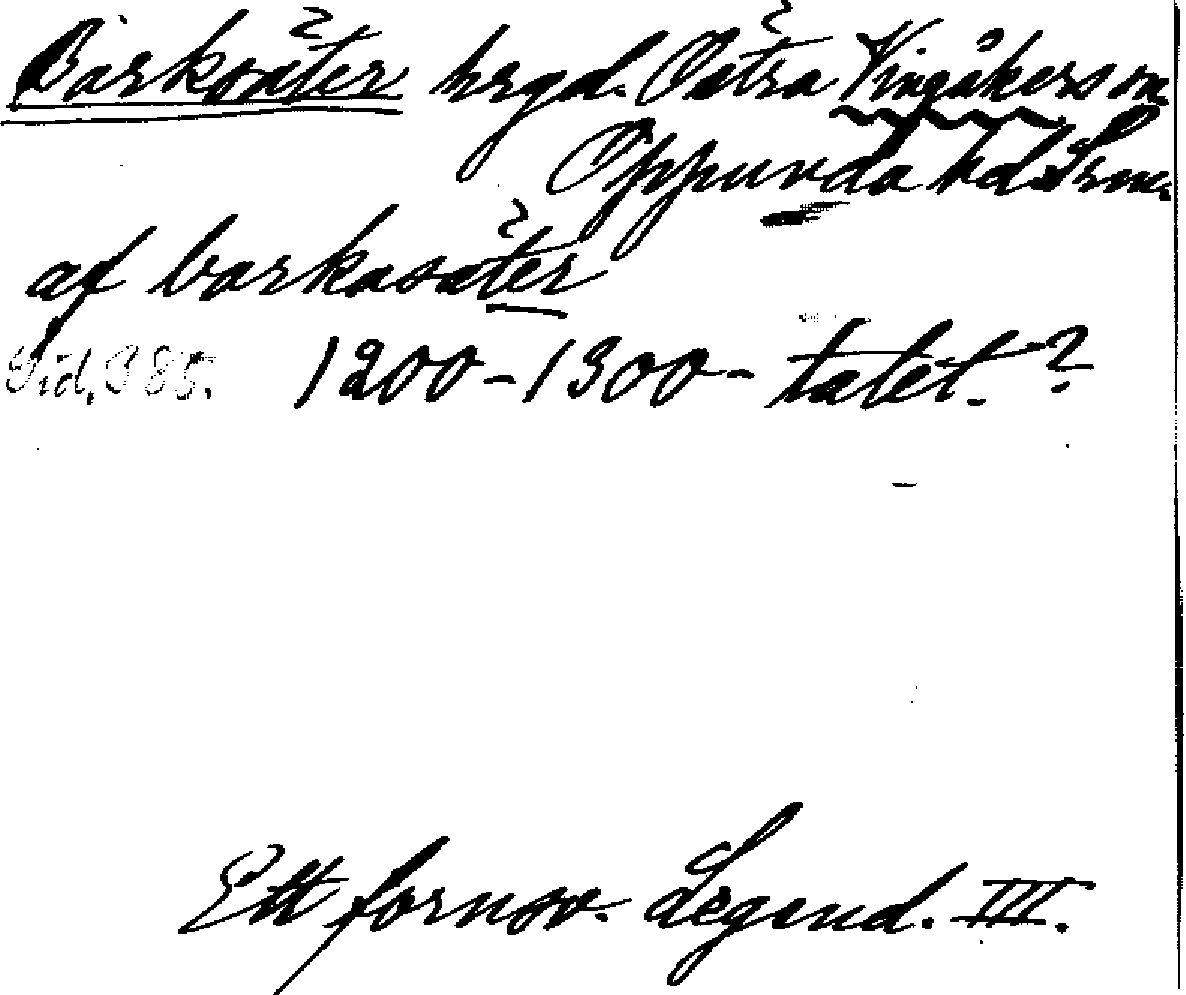 Barksäter hrgd. Östra Vingåkers sn
Oppunda hd. Srm.
af barkasæter
Sid. 385. 1200-1300-talet.?
Ett fornsv. Legend. III.